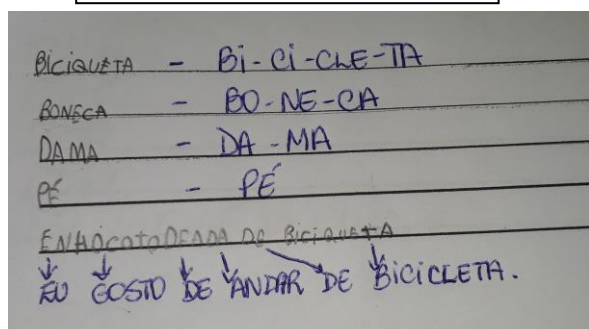 BICIQUETA - BI-CI-CLE-TA
BONECA - BO-NE-CA
DAMA - DA-MA
PÉ - PÉ
DE BICIQUETA
EU GOSTO DE ANDAR DE BICICLETA.